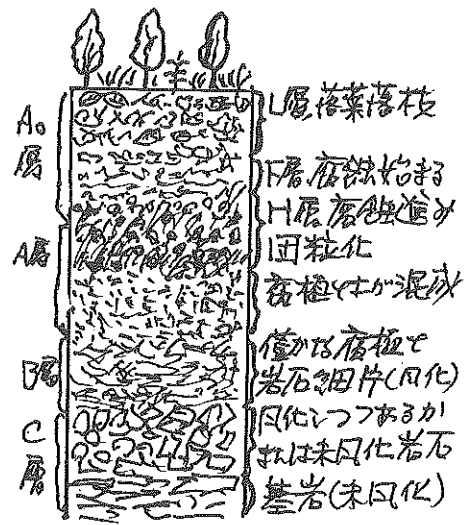 A₀層
L層落葉落枝
F層腐蝕始まる
H層腐蝕進み
団粒化
A層
腐植と土が混成
B層
僅かな腐植と
岩石細片(風化)
C層
風化しつつあるか
または未風化岩石
基岩(未風化)